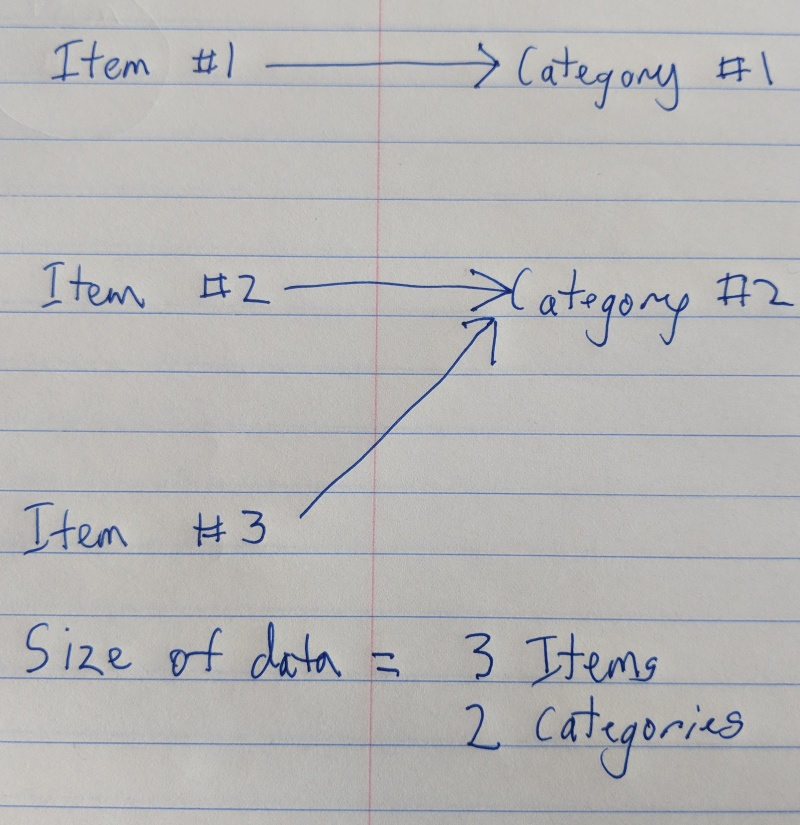 Item #1 → Category #1
Item #2 → Category #2
Item #3
Size of data = 3 Items
2 Categories